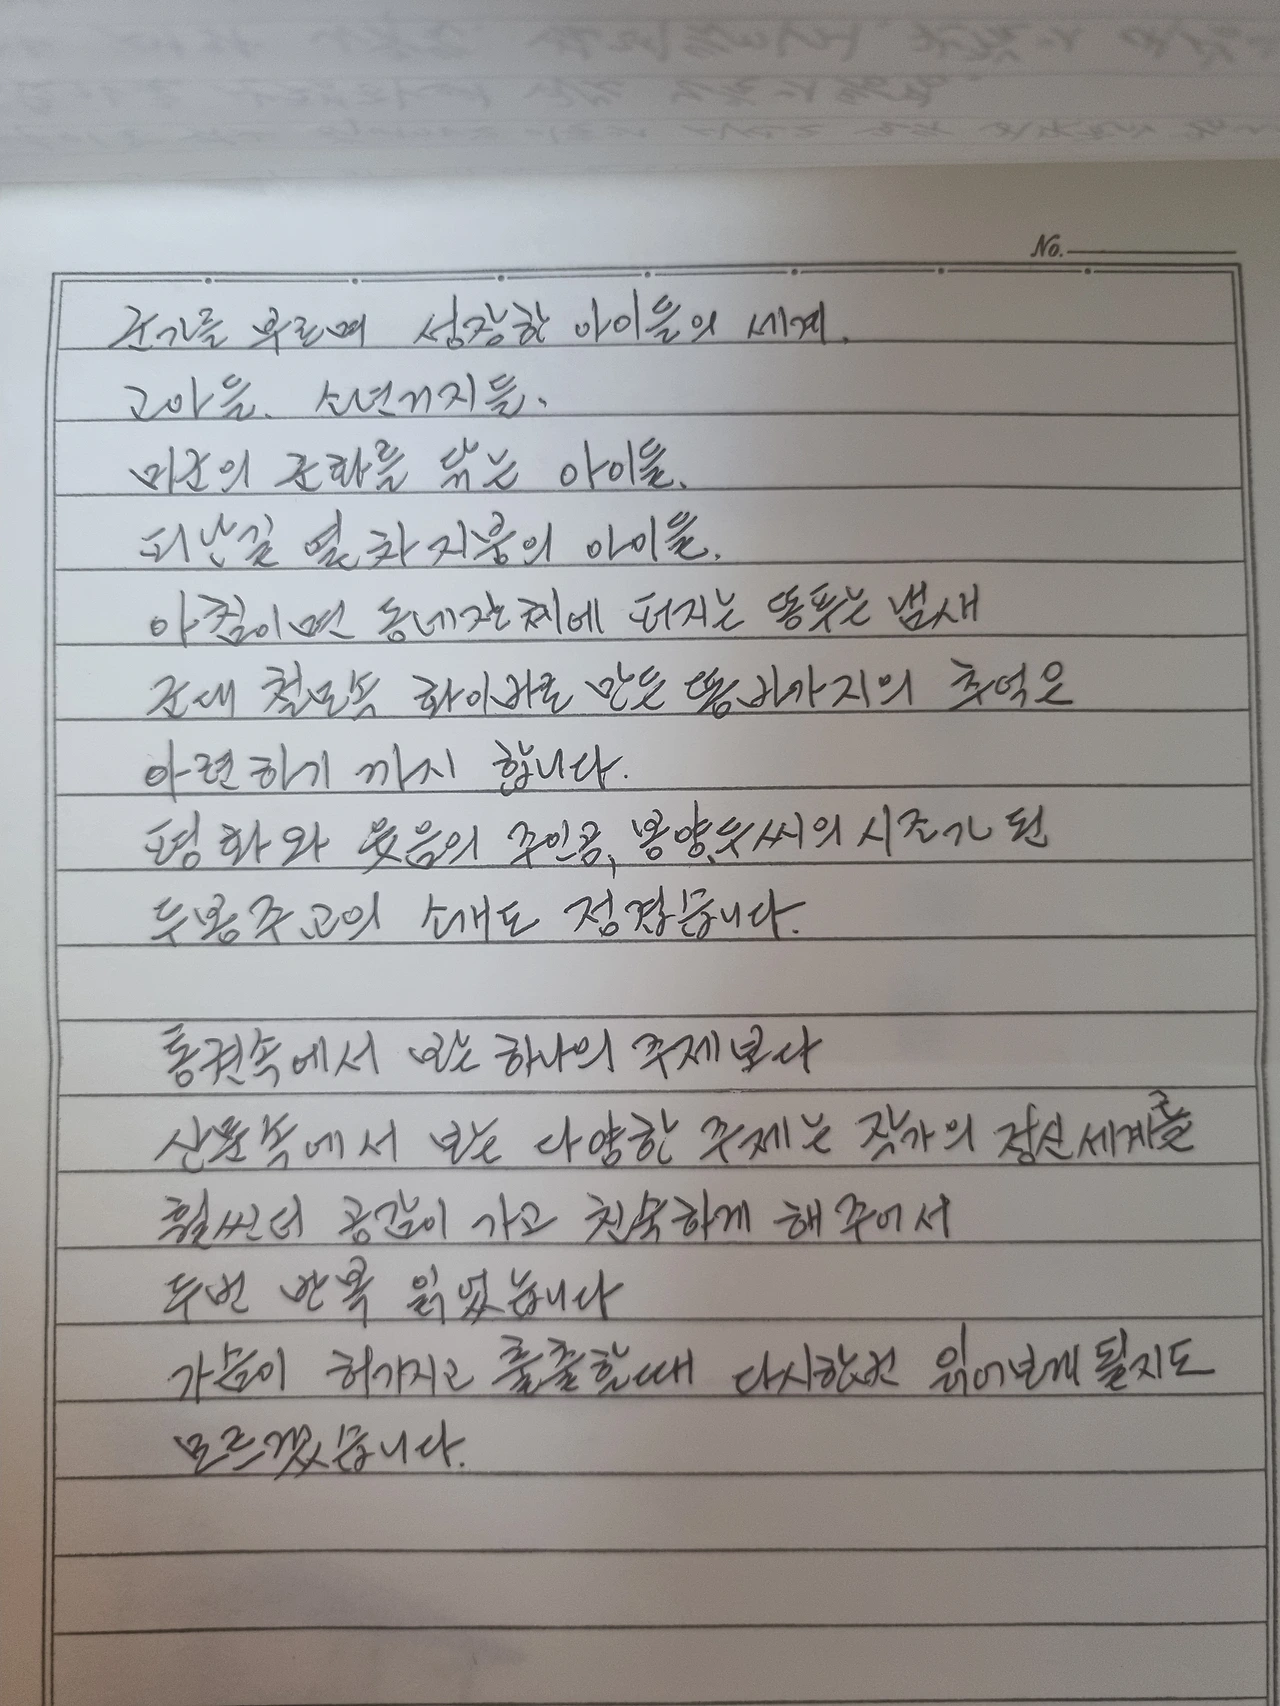 No.
군가를 부르며 성장한 아이들의 세계.
고아들. 소년거지들.
미군의 군화를 닦는 아이들.
피난길 열차 지붕의 아이들.
아침이면 동네잔체에 퍼지는 똥푸는 냄새
군대 철모속 화이바로 만든 똥바가지의 추억은
아련하기 까지 합니다.
평화와 웃음의 주인공, 봉양,두씨의 시조가 된
두봉주교의 소개도 정겹습니다.
통권속에서 보는 하나의 주제보다
산문속에서 보는 다양한 주제는 작가의 정신세계를
훨씬더 공감이 가고 친숙하게 해 주어서
두번 반복 읽었습니다
가슴이 허가지고 출출할때 다시한번 읽어보게 될지도
모르겠습니다.